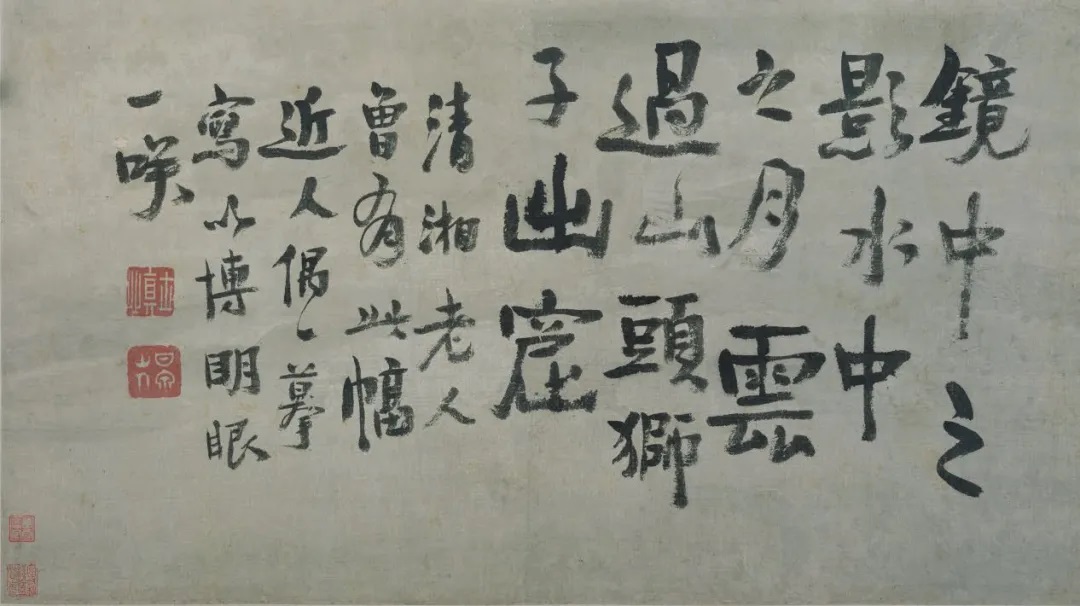 鏡中之
影水中
之月雲
過山頭獅
子出窟
清湘老人
曾有此幅
近人偶〻摹
寫以博明眼
一咲